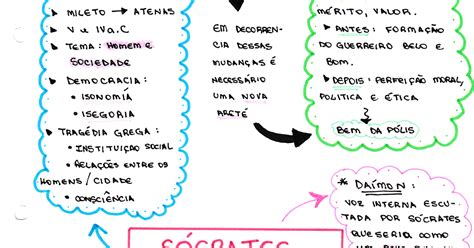 ▸ MILETO → ATENAS
▸ V e IV a.C
▸ TEMA: HOMEM E
SOCIEDADE
▸ DEMOCRACIA:
• ISONOMÍA
• ISEGORIA
▸ TRAGÉDIA GREGA:
• INSTITUIÇÃO SOCIAL
• RELAÇÕES ENTRE OS
HOMENS / CIDADE
• CONSCIÊNCIA
EM DECORREN-
CIA DESSAS
MUDANÇAS É
NECESSÁRIO
UMA NOVA
ARETÉ
MÉRITO, VALOR.
▸ ANTES: FORMAÇÃO
DO GUERREIRO BELO E
BOM.
▸ DEPOIS: PERFEIÇÃO MORAL,
POLITICA E ÉTICA
BEM DA PÓLIS
* DAÍMON:
VOZ INTERNA ESCU-
TADA POR SÓCRATES
QUE SERIA COMO
SÓCRATES